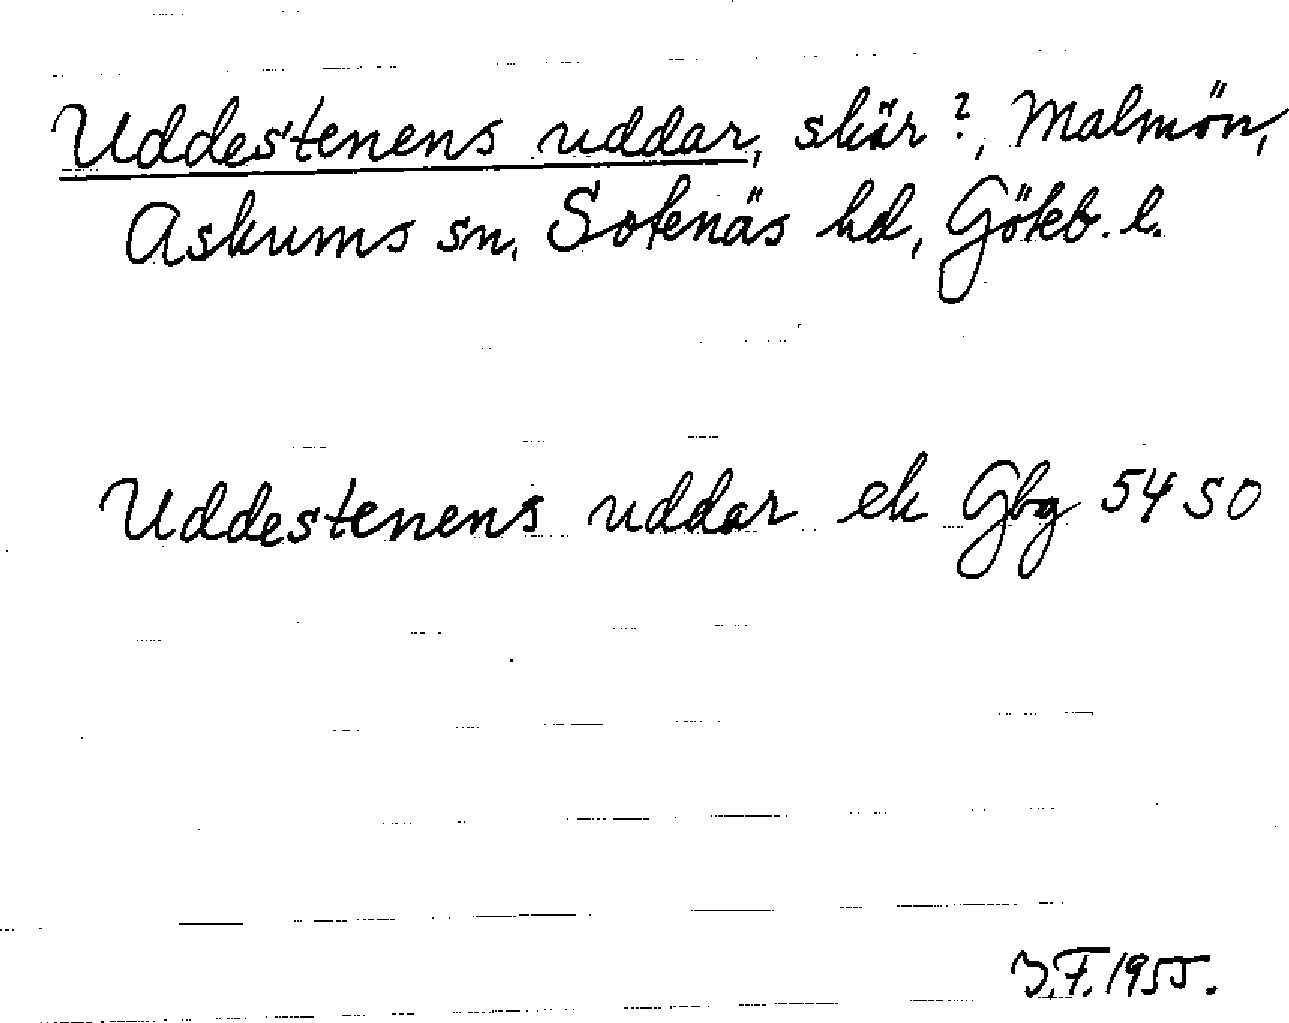 Uddestenens uddar, skär?, Malmön,
Askums sn, Sotenäs hd, Göteb. l.
Uddestenens uddar ek Gbg 5450
J.F. 1955.